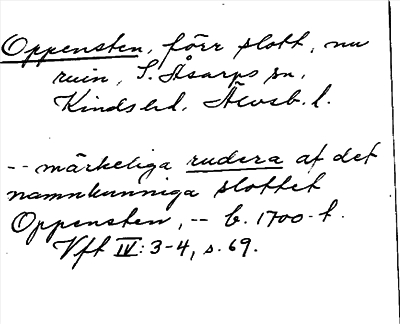 Oppensten, förr slott, nu
ruin, S. Åsarps sn,
Kinds hd, Älvsb. l.
-- märkeliga rudera af det
namnkunniga slottet
Oppensten, -- b. 1700-t.
Vft IV: 3-4, s. 69.